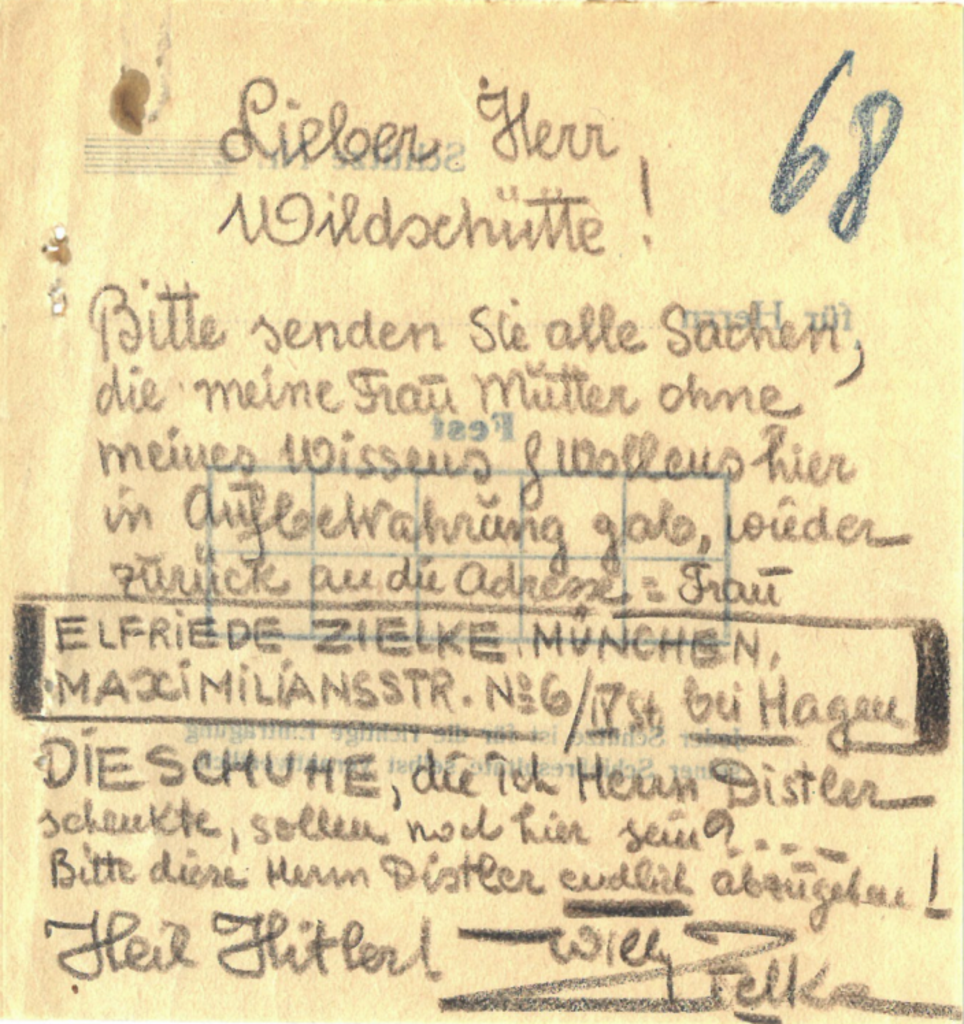 68
Lieber Herr
Wildschütte!
Bitte senden Sie alle Sachen,
die meine Frau Mutter ohne
meines Wissens & Wollens hier
in Aufbewahrung gab, wieder
zurück an die Adresse = Frau
ELFRiEDE ZIELKE MÜNCHEN,
MAXiMiLiANSSTR. No 6/IV St bei Hagen
DiE SCHUHE, die ich Herrn Distler
schenkte, sollen noch hier sein?...
Bitte diese Herrn Distler endlich abzugeben!
Heil Hitler! – Willy Zielke
für Herrn
Fest